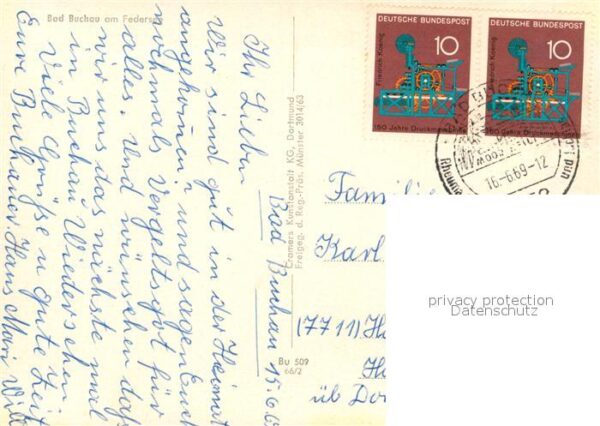 Bad Buchau am Federsee
Bad Buchau 15.6.69
Ihr Lieben
Wir sind gut in der Heimat
angekommen und sagen Euch
nochmals Vergeltsgott für
alles. Und wünschen daß
wir uns das nächste mal
in Buchau Wiedersehen
Viele Grüße u gute Zeit
Eure Buchauer. Hans Mari
Cramers Kunstanstalt KG, Dortmund
Freigeg. d. Reg.-Präs. Münster 3014/63
Bu 509
66/2
DEUTSCHE BUNDESPOST
10
Friedrich Koenig
150 Jahre Druckmaschine
DEUTSCHE BUNDESPOST
10
Friedrich Koenig
150 Jahre Druckmaschine
BAD BUCHAU
Rheuma
und
16.-6.69-12
Familie
Karl
(7711)
üb
privacy protection
Datenschutz